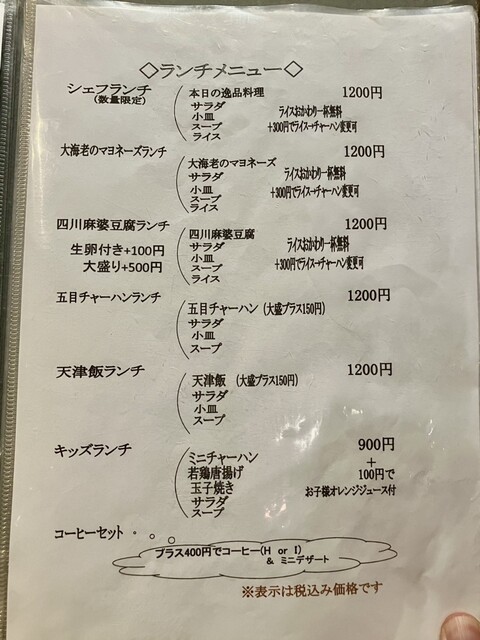 ◇ランチメニュー◇
シェフランチ
(数量限定)
1200円
本日の逸品料理
サラダ
小皿
スープ
ライス
ライスおかわり一杯無料
+300円でライス→チャーハン変更可
大海老のマヨネーズランチ
1200円
大海老のマヨネーズ
サラダ
小皿
スープ
ライス
ライスおかわり一杯無料
+300円でライス→チャーハン変更可
四川麻婆豆腐ランチ
生卵付き+100円
大盛り+500円
1200円
四川麻婆豆腐
サラダ
小皿
スープ
ライス
ライスおかわり一杯無料
+300円でライス→チャーハン変更可
五目チャーハンランチ
1200円
五目チャーハン (大盛プラス150円)
サラダ
小皿
スープ
天津飯ランチ
1200円
天津飯 (大盛プラス150円)
サラダ
小皿
スープ
キッズランチ
900円
+
100円で
お子様オレンジジュース付
ミニチャーハン
若鶏唐揚げ
玉子焼き
サラダ
スープ
コーヒーセット
プラス400円でコーヒー(H or I)
& ミニデザート
※表示は税込み価格です